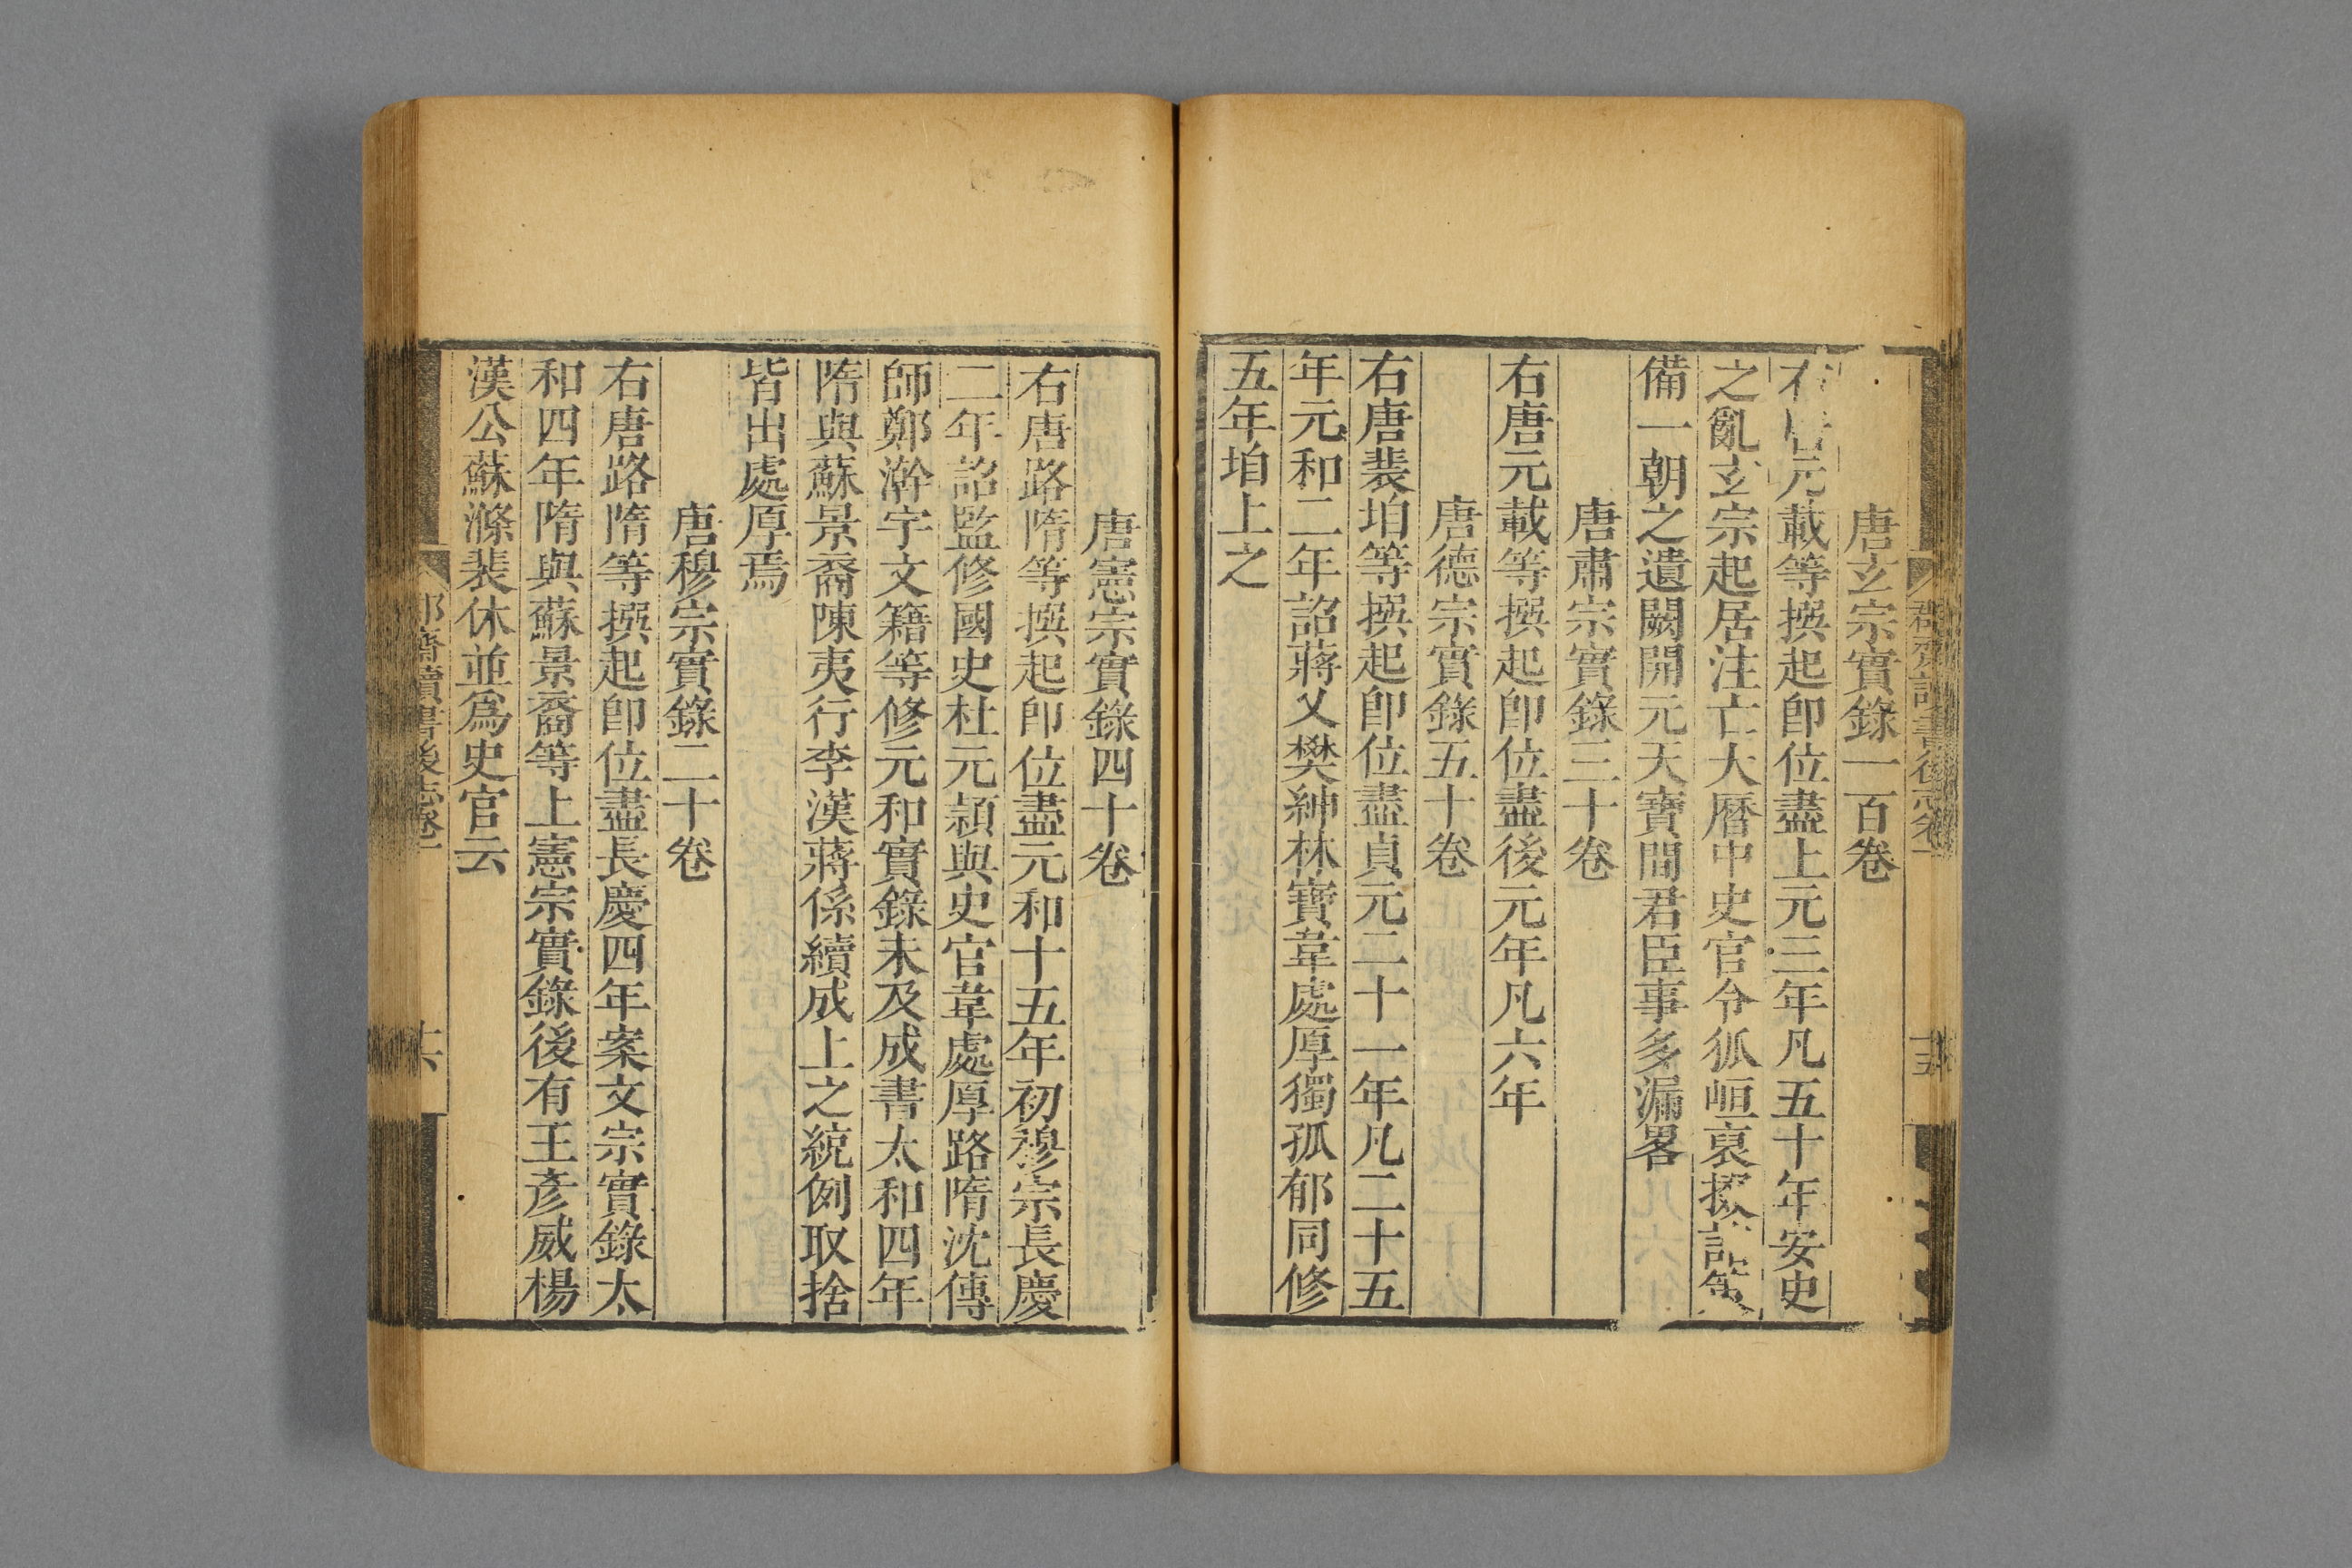 唐玄宗實錄一百卷
右唐元載等撰起卽位盡上元三年凡五十年安史
之亂玄宗起居注亡大曆中史官令狐峘裒掇詔策
備一朝之遺闕開元天寶間君臣事多漏畧
唐肅宗實錄三十卷
右唐元載等撰起卽位盡後元年凡六年
唐德宗實錄五十卷
右唐裴垍等撰起卽位盡貞元二十一年凡二十五
年元和二年詔蔣乂樊紳林寶韋處厚獨孤郁同修
五年垍上之
唐憲宗實錄四十卷
右唐路隋等撰起卽位盡元和十五年初穆宗長慶
二年詔監修國史杜元頴與史官韋處厚路隋沈傳
師鄭澣宇文籍等修元和實錄未及成書太和四年
隋與蘇景裔陳夷行李漢蔣係續成上之統例取捨
皆出處厚焉
唐穆宗實錄二十卷
右唐路隋等撰起卽位盡長慶四年案文宗實錄太
和四年隋與蘇景裔等上憲宗實錄後有王彥威楊
漢公蘇滌裴休並爲史官云